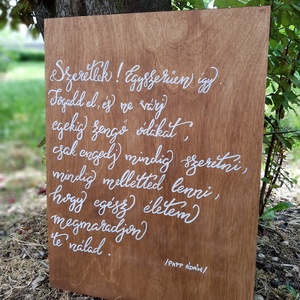 Szeretlek! Egyszerűen így.
Fogadd el, és ne várj
egekig zengő ódákat,
csak engedj mindig szeretni,
mindig melletted lenni,
hogy egész életem
megmaradjon
te nálad.
/PAPP ÁDÁM/